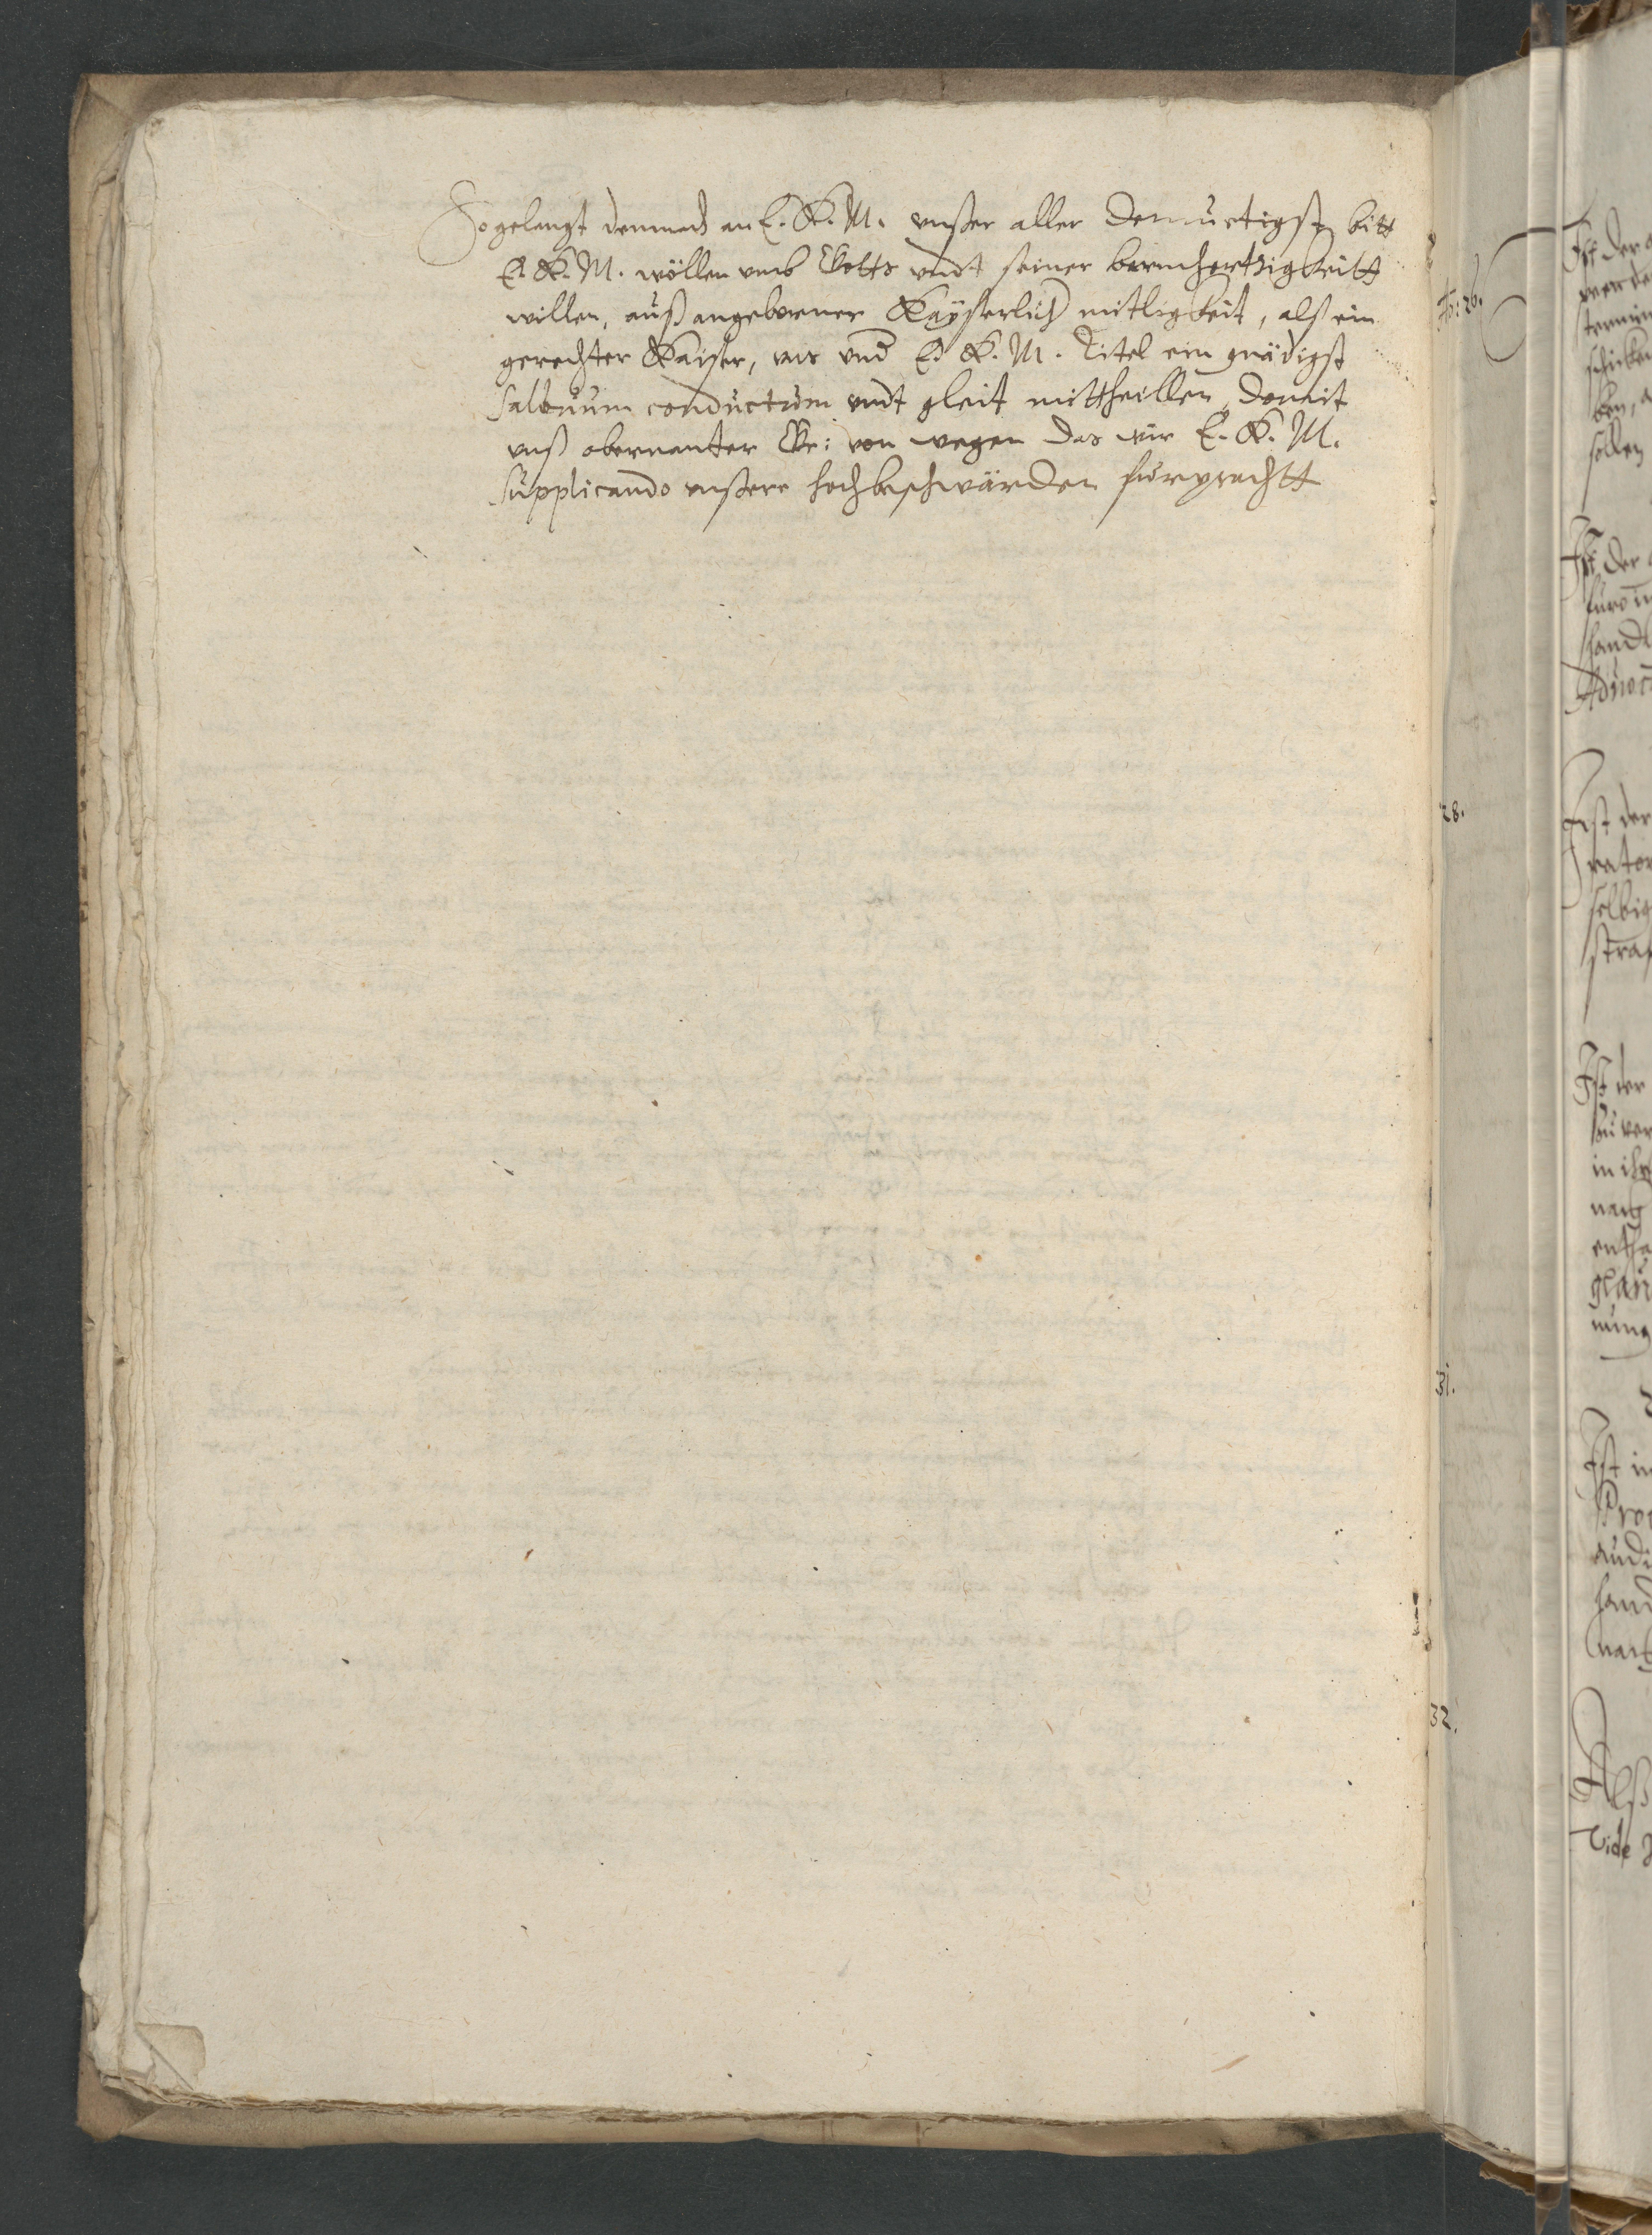 So gelangt demnach an E. K. M. vnßer aller demuetigst bitt
E. K. M. wöllen vmb Gotts vndt seiner barmhertzigkeitt
willen, auß angeborner Kaÿserlich mitligkeit, alß ein
gerechter Kaiser, vns vnd E. K. M. Titel ein gnädigst
saluum conductum vndt gleit mittheillen, domit
vnß obernanter Gr: von wegen das wir E. K. M.
supplicando vnßere hochbeschwärden furpracht
26.
28.
31.
32.
Ist der
werde
termin
sollen
Ist der
handl
Ist der
rator
selbig
straf
Ist der
zu ver
in ihr
nach
glau
nung
Ist in
Pro
audi
hand
nach
Alß
Vide